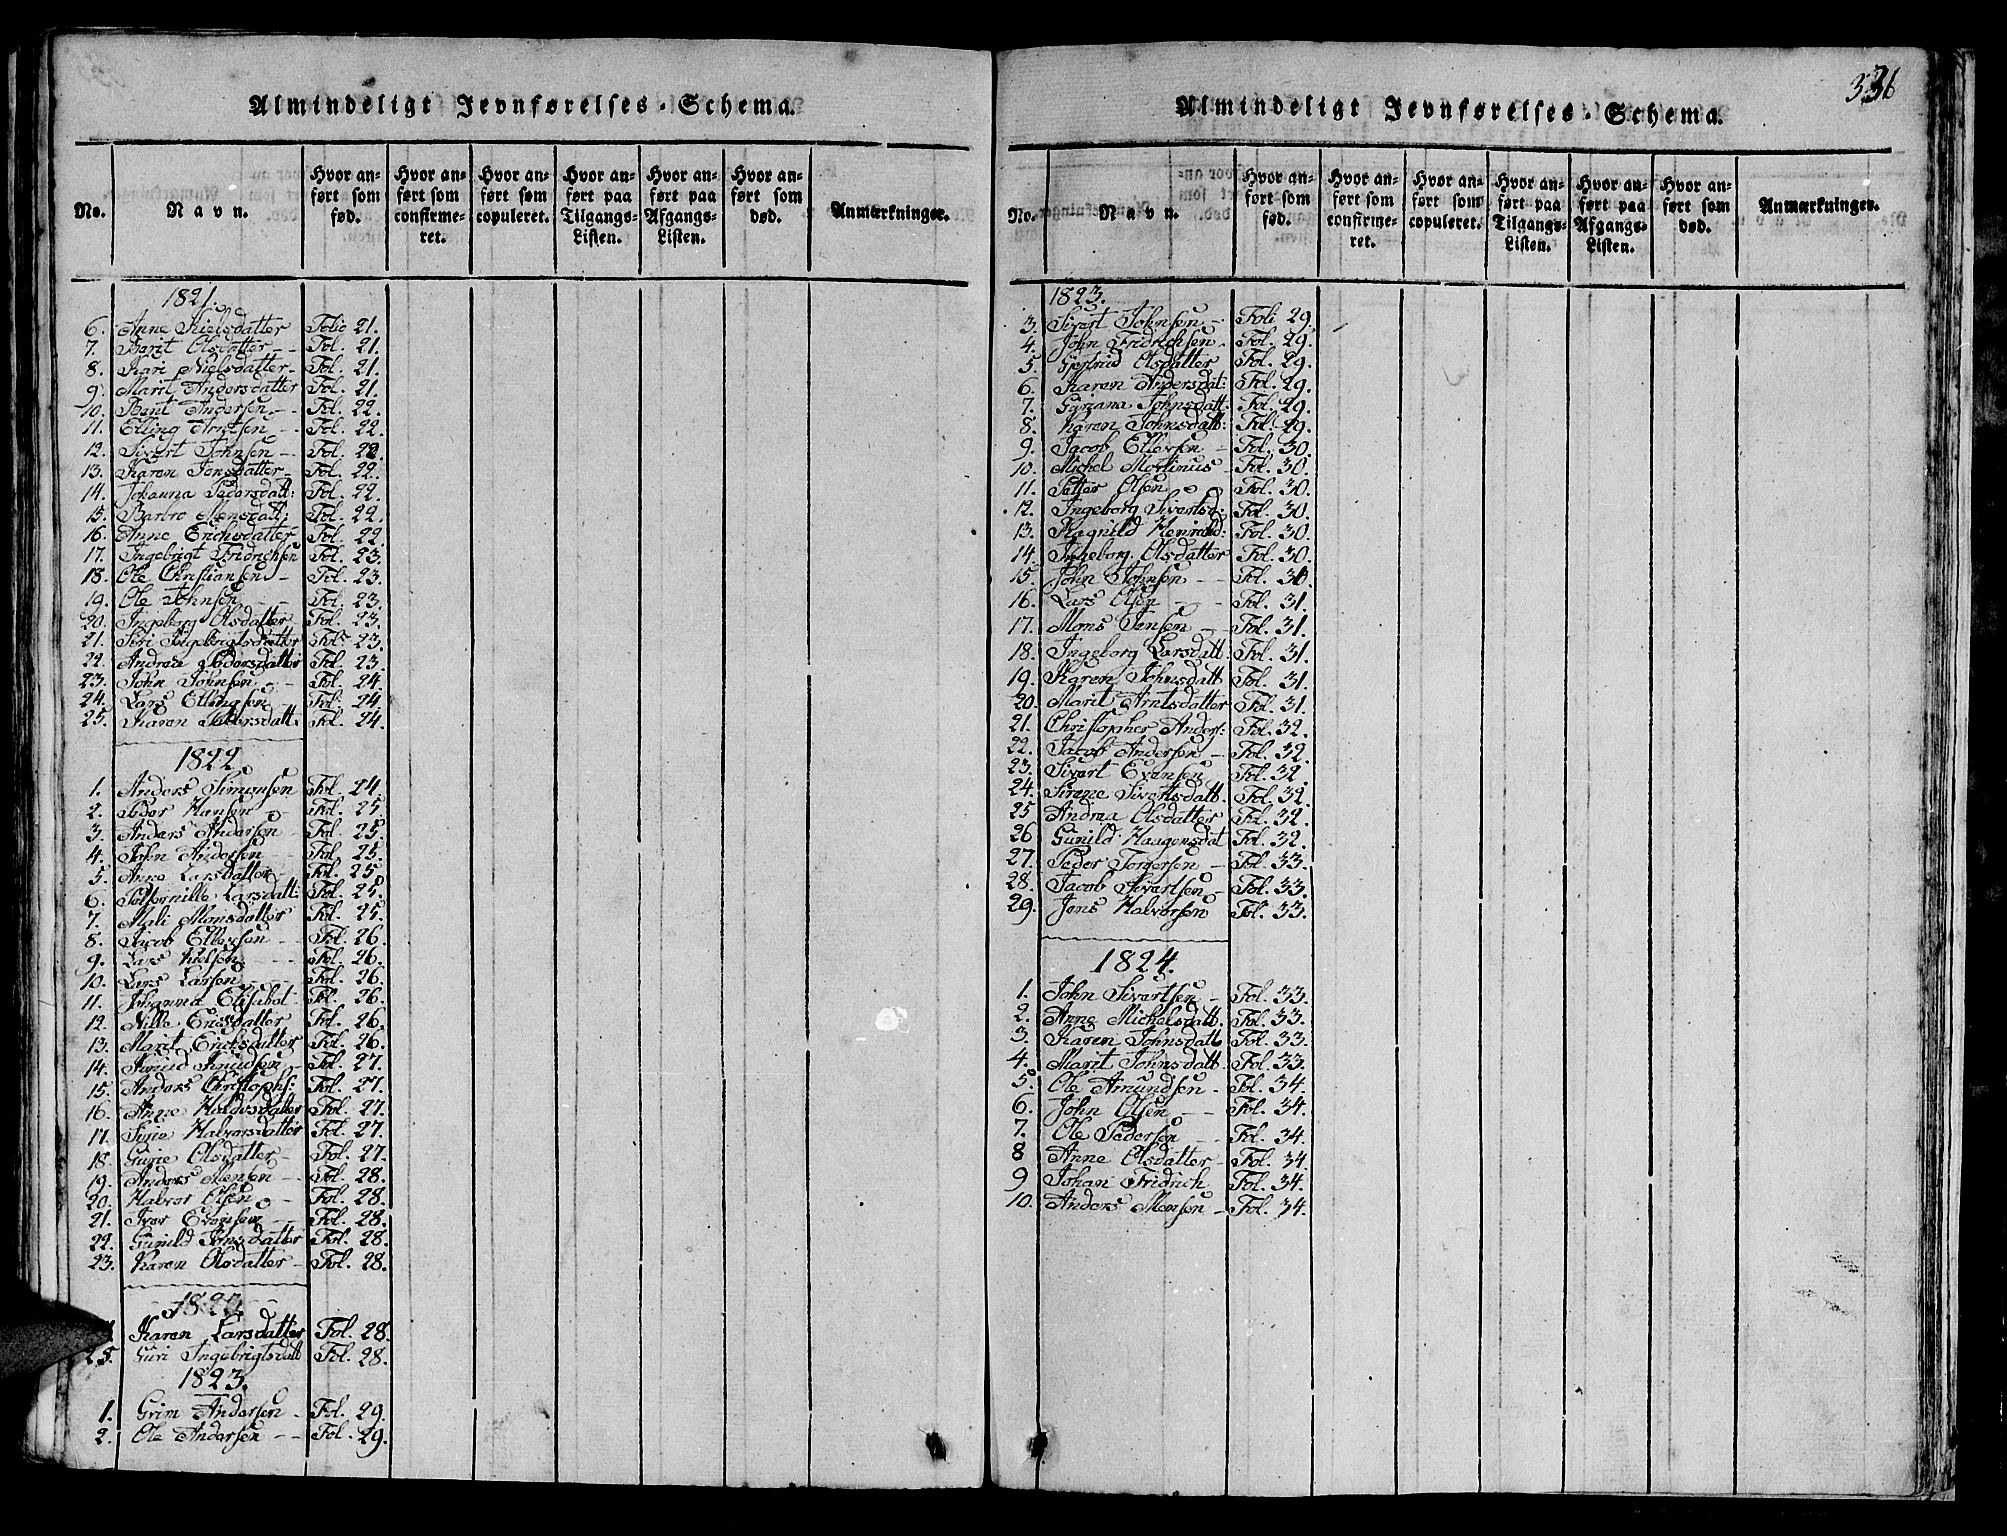 Almindeligt Jevnførelses-Schema.
No.
Navn.
Hvor anført som fød.
Hvor anført som confirmeret.
Hvor anført som copuleret.
Hvor anført paa Tilgangs-Listen.
Hvor anført paa Afgangs-Listen.
Hvor anført som død.
Anmærkninger.
1821.
6. Anne Nielsdatter Folio 21.
7. Berit Olsdatter - - Fol. 21.
8. Kari Nielsdatter - Fol. 21.
9. Marit Andersdatter Fol. 21.
10. Bent Andersen - - Fol. 22.
11. Elling Arntsen - - Fol. 22.
12. Sivert Johnsen - - Fol. 22.
13. Karen Jensdatter - Fol. 22.
14. Johanna Pedersdatt: Fol. 22.
15. Barbro Monsdatt: Fol. 22.
16. Anne Erichsdatter Fol. 22.
17. Ingebrigt Fridrichsen Fol. 23.
18. Ole Christiansen - Fol. 23.
19. Ole Johnsen - - Fol. 23.
20. Ingeborg Olsdatter Fol. 23.
21. Siri Ingebrigtsdatter Fol. 23.
22. Andrea Pedersdatter Fol. 23.
23. John Johnsen - - Fol. 24.
24. Lars Ellingsen Fol. 24.
25. Karen Pedersdatt: Fol. 24.
1822
1. Anders Simonsen Fol. 24.
2. Peder Hansen Fol. 25.
3. Anders Andersen Fol. 25.
4. John Andersen Fol. 25.
5. Anne Larsdatter - Fol. 25.
6. Petternille Larsdatt: Fol. 25.
7. Mali Monsdatter Fol. 25.
8. Jacob Ellevsen - - Fol. 26.
9. Lars Nielsen - - - Fol. 26.
10. Lars Larsen - - Fol. 26.
11. Johanna Elisabet - Fol. 26.
12. Nille Ericsdatter Fol. 26.
13. Marit Ericksdatter Fol. 26.
14. Knud Knudsen - Fol. 27.
15. Anders Christophs: Fol. 27.
16. Anne Holdesdatter Fol. 27.
17. Sirie Halvorsdatter Fol. 27.
18. Gurie Olsdatter - Fol. 27.
19. Anders Monsen - - Fol. 28.
20. Halvor Olsen - Fol. 28.
21. Iver Evensen - - Fol. 28.
22. Gunild Jonsdatter Fol. 28.
23. Karen Olsdatter - Fol. 28.
1822
Karen Larsdatter Fol. 28.
25. Guri Ingebrigtsdatt Fol. 28.
1823.
1. Grim Andersen - Fol. 29.
2. Ole Andersen - - Fol. 29.
336
Almindeligt Jevnførelses-Schema.
No.
Navn.
Hvor anført som fød.
Hvor anført som confirmeret.
Hvor anført som copuleret.
Hvor anført paa Tilgangs-Listen.
Hvor anført paa Afgangs-Listen.
Hvor anført som død.
Anmærkninger.
1823.
3. Sivert Johnsen - Foli 29.
4. John Fridrichsen - Fol. 29.
5. Gjertrud Olsdatter Fol. 29.
6. Karen Andersdat: Fol. 29.
7. Guriana Johnsdatt: Fol. 29.
8. Karen Johnsdatt: Fol. 29.
9. Jacob Ellevsen - Fol. 30.
10. Michel Mortinus - Fol. 30.
11. Petter Olsen Fol. 30.
12. Ingeborg Sivertsd: Fol. 30.
13. Ragnild Henriksd: Fol. 30.
14. Ingeborg Olsdatter Fol. 30.
15. John Johnsen - - Fol. 31.
16. Lars Olsen - - - Fol. 31.
17. Mons Jensen - - Fol. 31.
18. Ingeborg Larsdatt: Fol. 31.
19. Karen Johnsdatt Fol. 31.
20. Marit Arntsdatter Fol. 31.
21. Christopher Anders: Fol. 32.
22. Jacob Andersen - Fol. 32.
23. Sivert Evensen Fol. 32.
24. Sirene Sivertsdatt. Fol. 32.
25 Andrea Olsdatter Fol. 32.
26 Gunild Haagensdat Fol. 32.
27. Peder Torgersen - Fol. 33.
28. Jacob Sivertsen - Fol. 33.
29. Jens Halvorsen Fol. 33.
1824.
1. John Sivertsen - Fol. 33.
2. Anne Michelsdatt. Fol. 33.
3. Karen Johnsdatt Fol. 33.
4. Marit Johnsdatt. Fol. 33.
5. Ole Amundsen - Fol. 34.
6. John Olsen - - Fol. 34.
7. Ole Pedersen - Fol. 34.
8 Anne Olsdatter - Fol. 34.
9 Johan Fridrich Fol. 34.
10. Anders Monsen - Fol. 34.